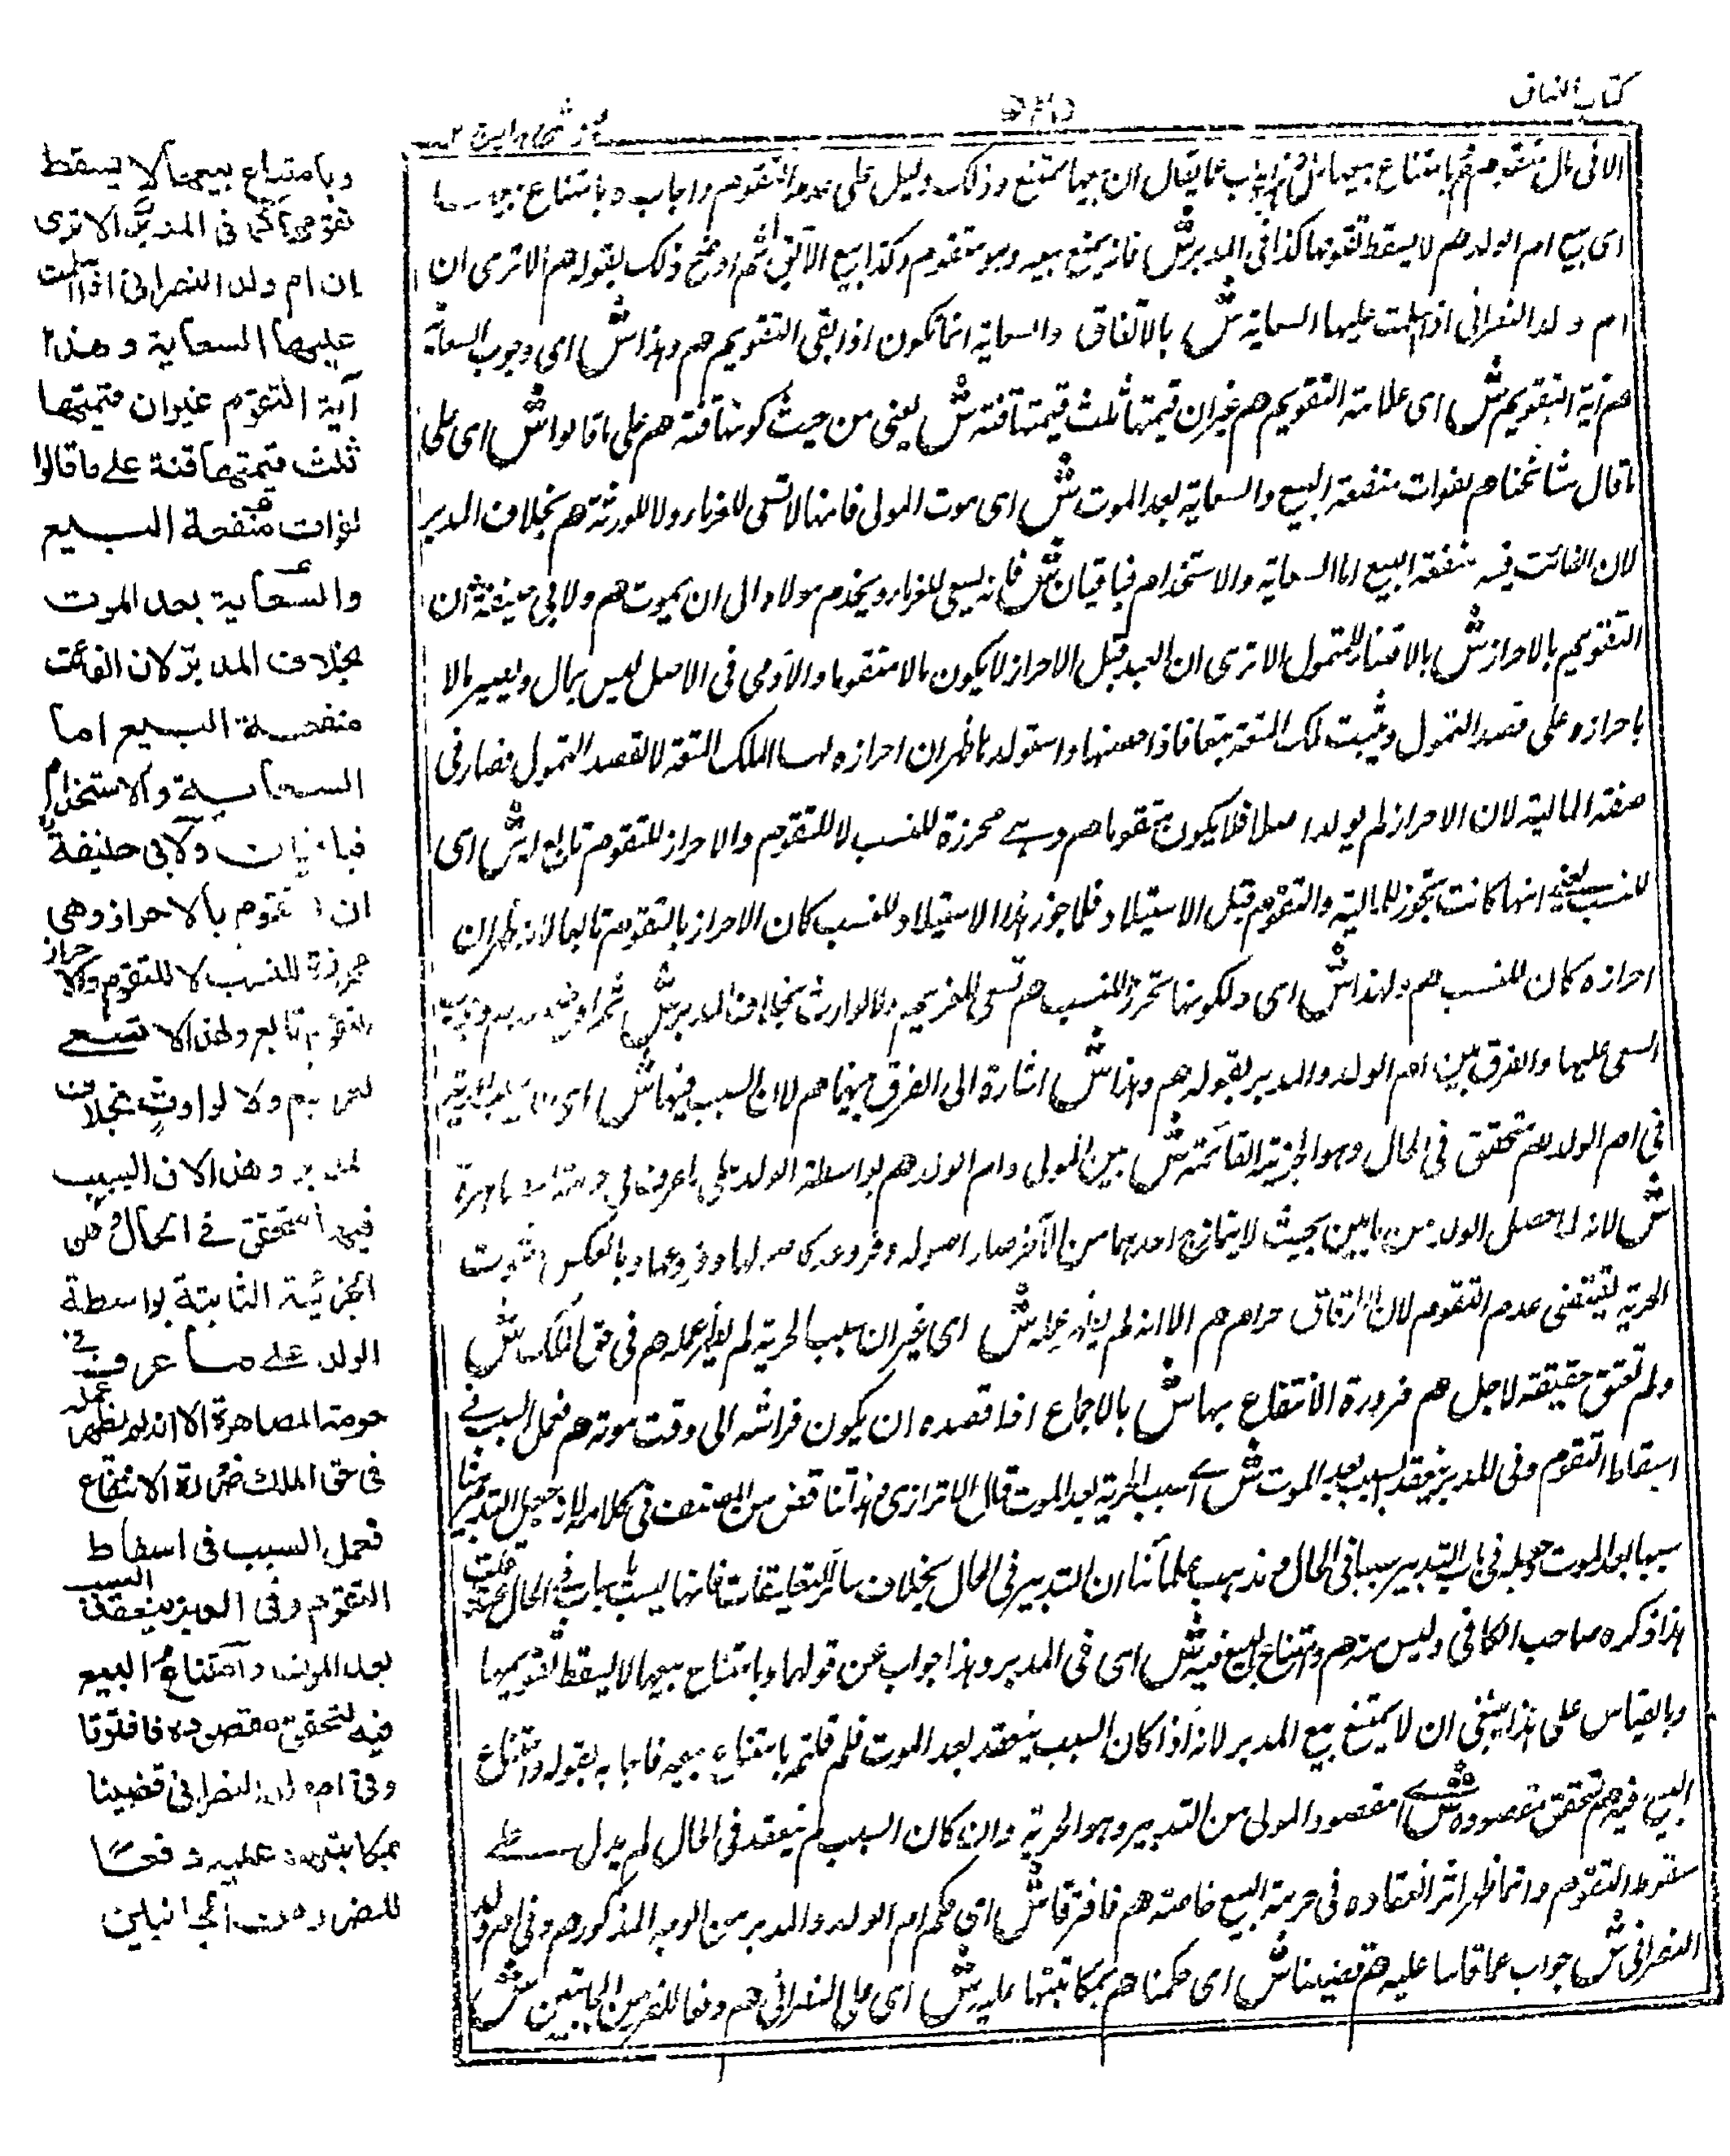 كتاب العتاق
الا فى مال متقوم هم وبامتناع بيعها ش هذا جواب عما يقال ان بيعها ممتنع وذلك دليل على عدم التقوم واجاب وبامتناع بيعها
اى بيع ام الولد هم لا يسقط تقومها كذا فى المدبر ش فانه يمتنع بيعه وهو متقوم وكذا بيع الآبق ثم اوضح ذلك بقوله هم الا ترى ان
ام ولد النصرانى اذا اسلمت عليها السعاية ش بالاتفاق والسعاية انما تكون اذا بقى التقويم هم وهذا ش اى وجوب السعاية
هم آية التقويم ش اى علامة التقويم هم غير ان قيمتها ثلث قيمتها قنة ش يعنى من حيث كونها قنة هم على ما قالوا ش اى على
ما قال مشائخنا هم لفوات منفعة البيع والسعاية بعد الموت ش اى موت المولى فانها لا تسعى للغرماء ولا للورثة هم بخلاف المدبر
لان الفائت فيه منفعة البيع اما السعاية والاستخدام فباقيان ش فانه يسعى للغرماء ويخدم مولاه الى ان يموت هم ولابى حنيفة ان
التقويم بالاحراز ش بالاقتناء للتمول الا ترى ان العبد قبل الاحراز لا يكون مالا متقوما والآدمى فى الاصل ليس بمال ويصير مالا
باحرازه على قصد التمول ويثبت ملك المتعة تبعا فاذا حصنها واستولدها ظهر ان احرازه لها لملك المتعة لا لقصد التمول فصار فى
صفة المالية لان الاحراز لم يوجد اصلا فلا يكون متقوما هم وهى محرزة للنسب لا للتقوم والاحراز للتقوم تابع ش اى
للنسب يعنى انها كانت للمالية والتقوم قبل الاستيلاد فلما هذا الاستيلاد للنسب كان الاحراز بالتقوم تابعا لانه ظهر ان
احرازه كان للنسب هم ولهذا ش اى ولكونها تحرز للنسب هم لا تسعى لغريم ولا لوارث بخلاف المدبر ش ثم
السعى عليها والفرق بين ام الولد والمدبر بقوله هم وهذا ش اشارة الى الفرق بينهما هم لان السبب فيها ش اى
فى ام الولد هم متحقق فى الحال وهو الجزئية القائمة ش بين المولى وام الولد هم بواسطة الولد على ما عرف فى حرمة المصاهرة
ش لانه لما حصل الولد من مايين بحيث لا يتمايز احدهما من الآخر صار اصوله وفروعه كاصولها وفروعها وبالعكس وثبوت
الحرية يقتضى عدم التقوم لان الارقاق حرام هم الا انه لم يظهر عمله ش اى غير ان سبب الحرية لم يظهر عمله هم فى حق الملك ش
ولم تعتق حقيقة لاجل هم ضرورة الانتفاع بها ش بالاجماع اذا قصده ان يكون فراشه الى وقت موته هم فعمل السبب فى
اسقاط التقوم وفى المدبر ينعقد السبب بعد الموت ش اى سبب الحرية بعد الموت قال الاترازى هذا تناقض من المصنف فى كلامه لانه جعل التدبير هنا
سببا بعد الموت وجعله فى باب التدبير سببا فى الحال ومذهب علمائنا ان التدبير فى الحال بخلاف سائر التعليقات فانها ليست باسباب فى الحال قلت
هذا ذكره صاحب الكافى وليس منه هم وامتناع البيع فيه ش اى فى المدبر وهذا جواب عن قولهما وبامتناع بيعها لا يسقط تقويمها
وبالقياس على هذا ينبغى ان لا يمتنع بيع المدبر لانه اذا كان السبب ينعقد بعد الموت فلم قلتم بامتناع بيعه فاجابه بقوله وامتناع
البيع فيه هم لتحقق مقصوده ش اى مقصود المولى من التدبير وهو الحرية وان كان السبب لم ينعقد فى الحال لم يدل على
سقوط التقوم وانما ظهر اثر انعقاده فى حرمة البيع خاصة هم فافترقا ش اى حكم ام الولد والمدبر من الوجه المذكور هم وفى ام ولد
النصرانى ش جواب عما قاسا عليه هم قضينا ش اى حكمنا هم بمكاتبتها عليه ش اى على النصرانى هم دفعا للضرر من الجانبين ش
وبامتناع بيعها لا يسقط
تقومها كما فى المدبر الا ترى
ان ام ولد النصرانى اذا اسلمت
عليها السعاية وهذا
آية التقوم غير ان قيمتها
ثلث قيمتها قنة على ما قالوا
لفوات منفعة البيع
والسعاية بعد الموت
بخلاف المدبر لان الفائت
منفعة البيع اما
السعاية والاستخدام
فباقيان ولابى حنيفة
ان التقوم بالاحراز وهى
محرزة للنسب لا للتقوم والاحراز
للتقوم تابع ولهذا لا تسعى
لغريم ولا لوارث بخلاف
المدبر وهذا لان السبب
فيها متحقق فى الحال وهى
الجزئية الثابتة بواسطة
الولد على ما عرف فى
حرمة المصاهرة الا انه لم يظهر عمله
فى حق الملك ضرورة الانتفاع
فعمل السبب فى اسقاط
التقوم وفى المدبر ينعقد السبب
بعد الموت وامتناع البيع
فيه لتحقق مقصوده فافترقا
وفى ام ولد النصرانى قضينا
بمكاتبتها عليه دفعا
للضرر من الجانبين